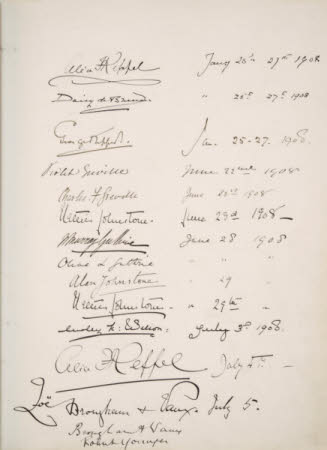 Alice Keppel Jany 26th 29th 1908
Daisy " 26th 27th 1908
George Keppel. Jan. 25-27. 1908.
Violet Greville June 22nd 1908
Charles F Greville June 22nd 1908
Ulrica Johnstone. June 23d 1908
Murray Guthrie June 28 1908
Olive L Guthrie " "
Alan Johnstone " 29 "
Johnstone " 29th "
Wilson. July 3d 1908.
Alice Keppel July 4th
Zoë Brougham & Vaux. July 5.
Brougham & Vaux
Robert Younger